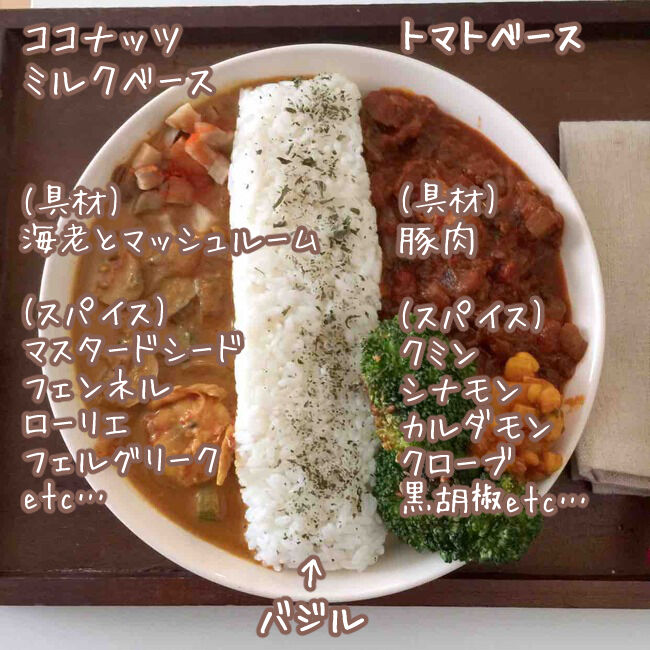 ココナッツ
ミルクベース
(具材)
海老とマッシュルーム
(スパイス)
マスタードシード
フェンネル
ローリエ
フェルグリーク
etc…
トマトベース
(具材)
豚肉
(スパイス)
クミン
シナモン
カルダモン
クローブ
黒胡椒etc…
↑
バジル